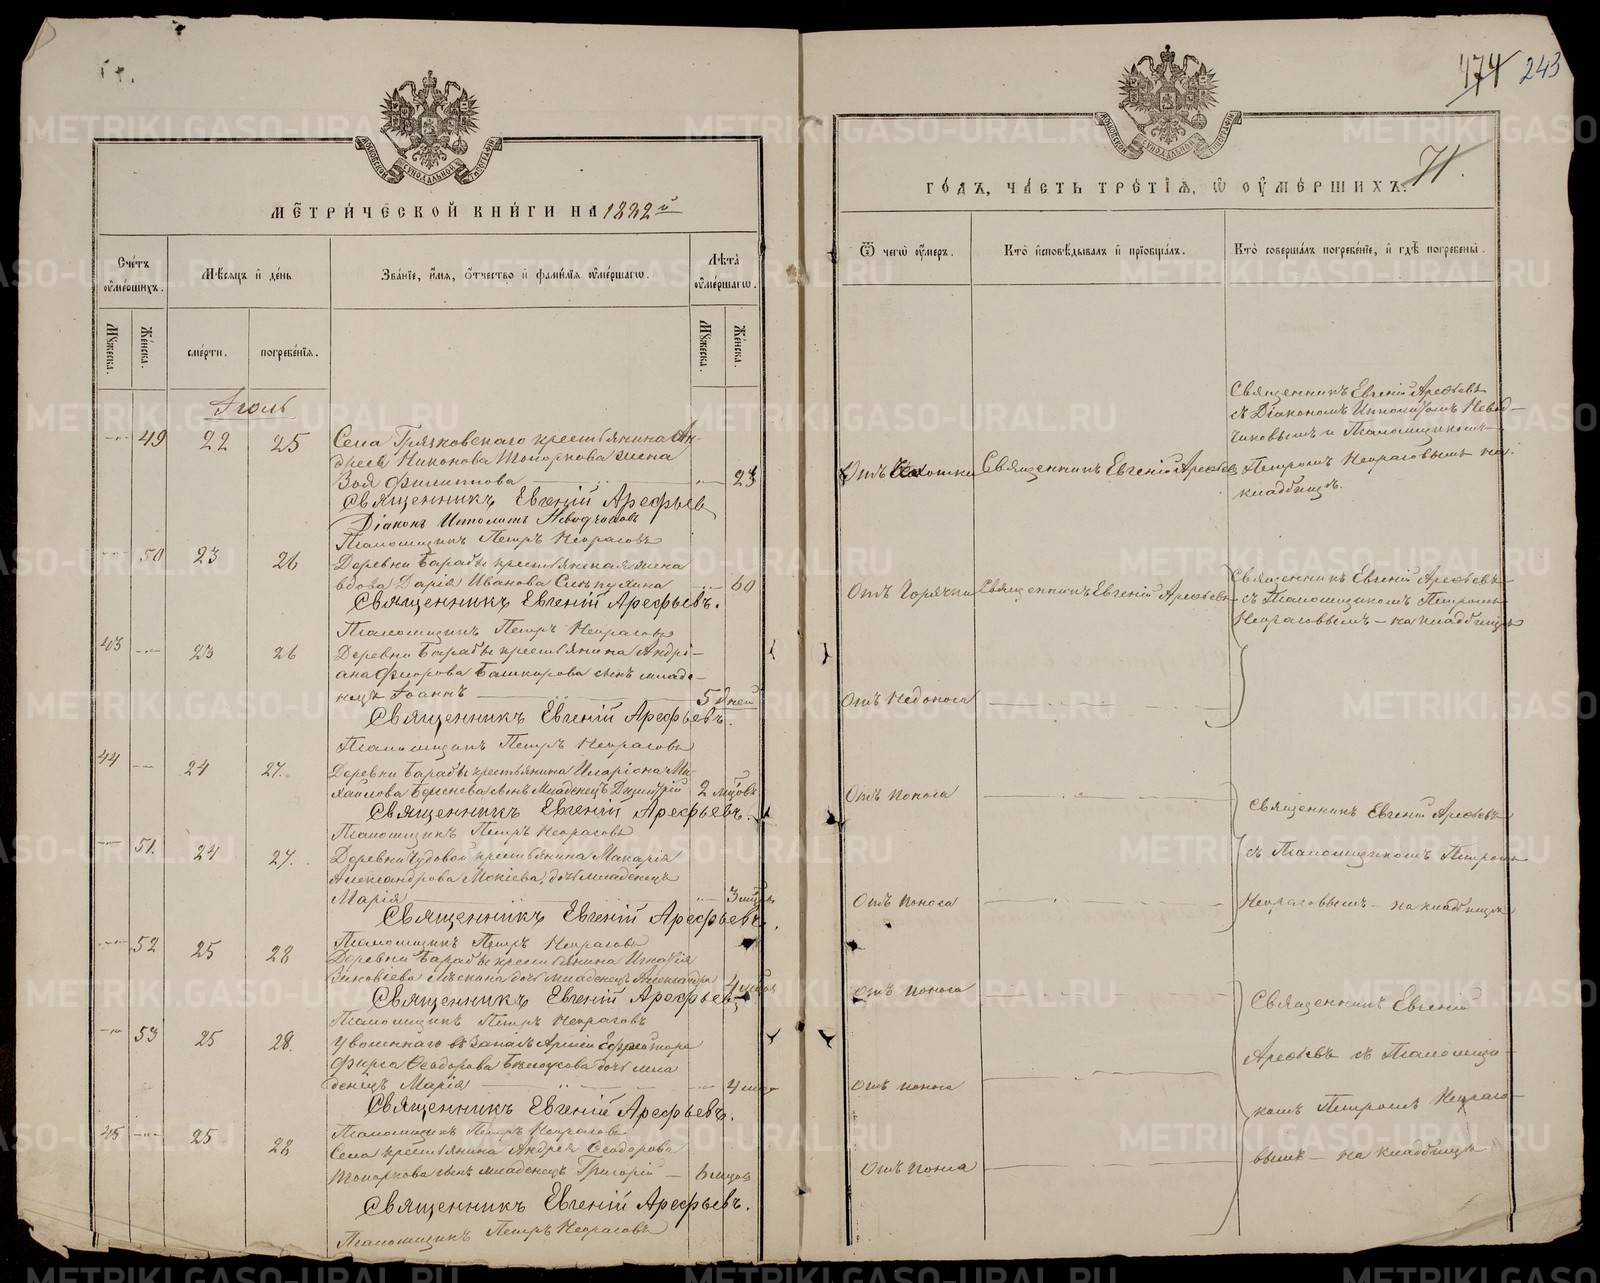 METRIKI.GASO-URAL.RU
МОСКОВСКОЙ СѴНОДАЛЬНОЙ ТИПОГРАФІИ
МЕТРИЧЕСКОЙ КНИГИ НА 1882 й
Счетъ оумершихъ.
Мѣсяцъ и день
Званіе, имя, отчество и фамилія оумершагω.
Лѣта оумершагω.
Мужеска.
Женска.
смерти.
погребенія.
Мужеска.
Женска.
Іюль
49 22 25 Села Грязновскаго крестьянина Ан-
дрея Никонова Топоркова жена
Зоя Филиппова 23
Священникъ Евгеній Арефьев
Діаконъ Ипполитъ Неводчиковъ
Псаломщикъ Петръ Некрасовъ
50 23 26 Деревни Барабы крестьянская жена
вдова Дарія Иванова 60
Священникъ Евгеній Арефьевъ.
Псаломщикъ Петръ Некрасовъ
43 23 26 Деревни Барабы крестьянина Андрі-
ана Флорова Башкирова сынъ младе-
нецъ Іоаннъ 5 дней
Священникъ Евгеній Арефьевъ.
Псаломщикъ Петръ Некрасовъ
44 24 27. Деревни Барабы крестьянина Иларіона Ми-
хайлова Берсенева сынъ младенецъ Димитрій 2 мѣсцовъ
Священникъ Евгеній Арефьевъ.
Псаломщикъ Петръ Некрасовъ
51. 24 27. Деревни Чудовой крестьянина Макарія
Александрова Мокіева, дочь младенецъ
Марія 3
Священникъ Евгеній Арефьевъ.
Псаломщикъ Петръ Некрасовъ
52 25 28 Деревни Барабы крестьянина Игнатія
Зиновіева дочь младенецъ Александра 4
Священникъ Евгеній Арефьев
Псаломщикъ Петръ Некрасовъ
53 25 28. Уволеннаго въ Запасъ Арміи Ефрейтора
Фирса Ѳеодорова дочь мла
денецъ Марія 4
Священникъ Евгеній Арефьевъ.
Псаломщикъ Петръ Некрасовъ
45 25 28 Села крестьянина Андрея Ѳеодорова
Топоркова сынъ младенецъ Григорій 6
Священникъ Евгеній Арефьевъ.
Псаломщикъ Петръ Некрасовъ
174 243
МОСКОВСКОЙ СѴНОДАЛЬНОЙ ТИПОГРАФІИ
71.
ГОДЪ, ЧАСТЬ ТРЕТІЯ, Ѡ ОУМЕРШИХЪ.
Ѿ чегω оумеръ.
Кто исповѣдывалъ и пріобщалъ.
Кто совершалъ погребеніе, и гдѣ погребены.
Отъ Чахотки Священникъ Евгеній Арефьевъ
Священникъ Евгеній Арефьевъ
съ Діакономъ Ипполитомъ Невод-
чиковымъ и Псаломщикомъ
Петромъ Некрасовымъ на
кладбищѣ.
Отъ Горячки Священникъ Евгеній Арефьевъ
Священникъ Евгеній Арефьевъ
съ Псаломщикомъ Петромъ
Некрасовымъ – на кладбищѣ
Отъ Недоноса
Отъ поноса
Священникъ Евгеній Арефьевъ
съ Псаломщикомъ Петромъ
Отъ поноса
Некрасовымъ – на кладбищѣ
Отъ поноса
Священникъ Евгеній
Арефьевъ съ Псаломщи-
Отъ поноса
комъ Петромъ Некрасо-
вымъ – на кладбищѣ
Отъ поноса